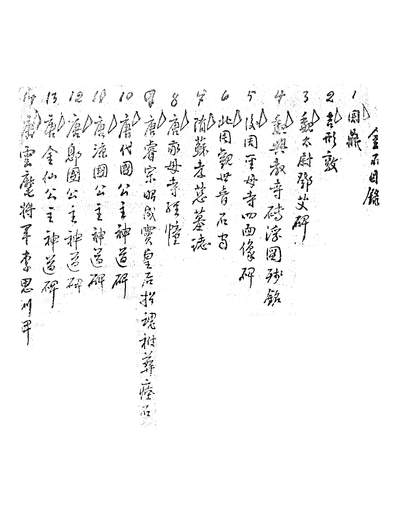 金石目錄
1 周鼎
2 形敦
3 魏太尉鄧艾碑
4 魏興教寺磚浮圖殘銘
5 後周聖母寺四面像碑
6 北周觀世音石
7 隋蘇孝慈墓誌
8 唐母寺經幢
9 唐睿宗昭成竇皇后招魂祔葬瘞石
10 唐代國公主神道碑
11 唐涼國公主神道碑
12 唐鄎國公主神道碑
13 唐金仙公主神道碑
14 唐雲麾將軍李思